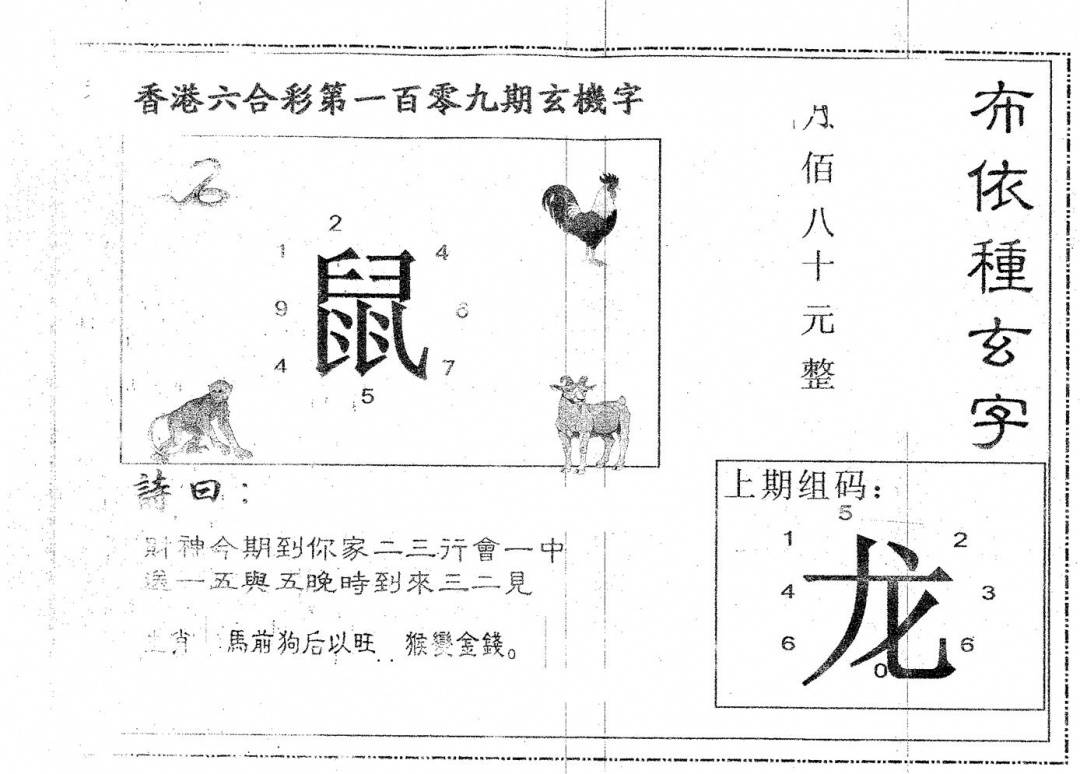 香港六合彩第一百零九期玄機字
布依種玄字
佰八十元整
2
1 4
鼠
9 6
4 7
5
詩曰：
財神今期到你家二三行會一中
一五與五晚時到來三二見
肖 馬前狗后以旺 猴變金錢。
上期组码：
5
1 2
龙
4 3
6 6
0